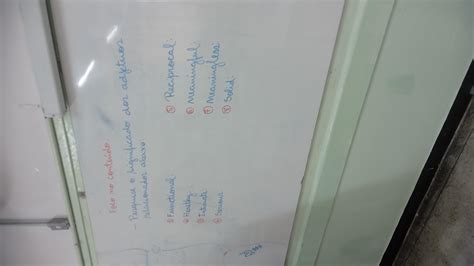 Foco no conteúdo
- Pesquise o significado dos adjetivos
relacionados abaixo
① Functional
② Healthy
③ Intimate
④
⑤ Reciprocal
⑥ Meaningful
⑦ Meaningless
⑧ Solid